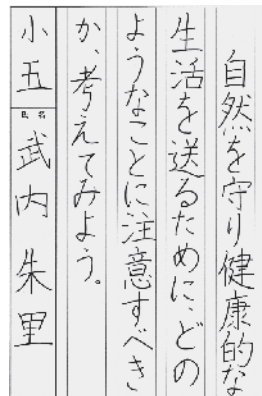 自然を守り健康的な
生活を送るために、どの
ようなことに注意すべき
か、考えてみよう。
小五 氏名 武内朱里